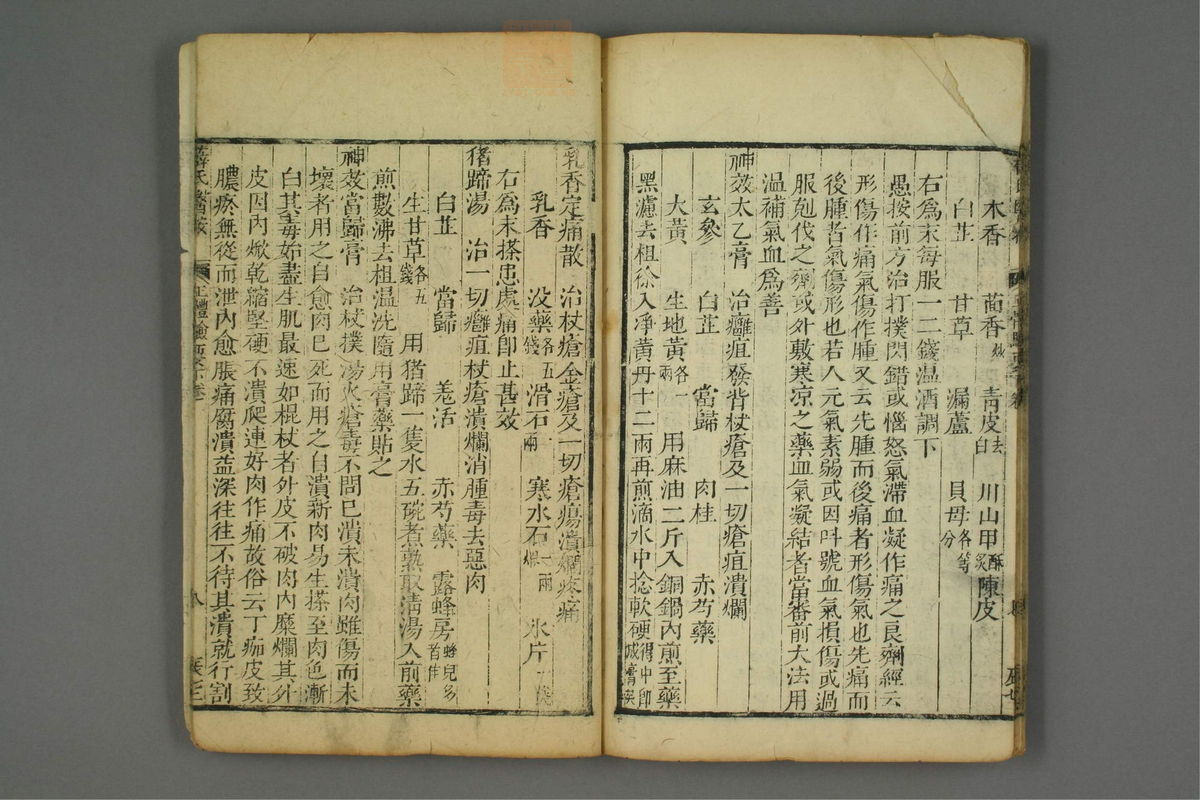 木香　茴香炒　靑皮去白　川山甲酥炙　陳皮
白芷　甘草　漏蘆　貝母各等分
右爲末每服一二錢温酒調下
愚按前方治打撲閃錯或惱怒氣滯血凝作痛之良劑經云
形傷作痛氣傷作腫又云先腫而後痛者形傷氣也先痛而
後腫者氣傷形也若人元氣素弱或因叫號血氣損傷或過
服剋伐之劑或外敷寒凉之藥血氣凝結者當審前大法用
温補氣血爲善
神效太乙膏　治癰疽發背杖瘡及一切瘡疽潰爛
玄參　白芷　當歸　肉桂　赤芍藥
大黃　生地黃各一兩　用麻油二斤入銅鍋內煎至藥
黑濾去柤徐入净黃丹十二兩再煎滴水中捻軟硬得中即成膏矣
乳香定痛散　治杖瘡金瘡及一切瘡瘍潰爛疼痛
乳香　没藥各五錢　滑石一兩　寒水石煅一兩　氷片一錢
右爲末搽患處痛卽止甚效
猪蹄湯　治一切癰疽杖瘡潰爛消腫毒去惡肉
白芷　當歸　羌活　赤芍藥　露蜂房蜂兒多者佳
生甘草各五錢　用猪蹄一隻水五碗煮熟取清湯入前藥
煎數沸去柤温洗隨用膏藥貼之
神效當歸膏　治杖撲湯火瘡毒不問巳潰未潰肉雖傷而未
壞者用之自愈肉巳死而用之自潰新肉易生搽至肉色漸
白其毒始盡生肌最速如棍杖者外皮不破肉內糜爛其外
皮因內焮乾縮堅硬不潰爬連好肉作痛故俗云丁痂皮致
膿瘀無從而泄內愈脹痛腐潰益深往往不待其潰就行割
薛氏醫按　正體類要下卷　八